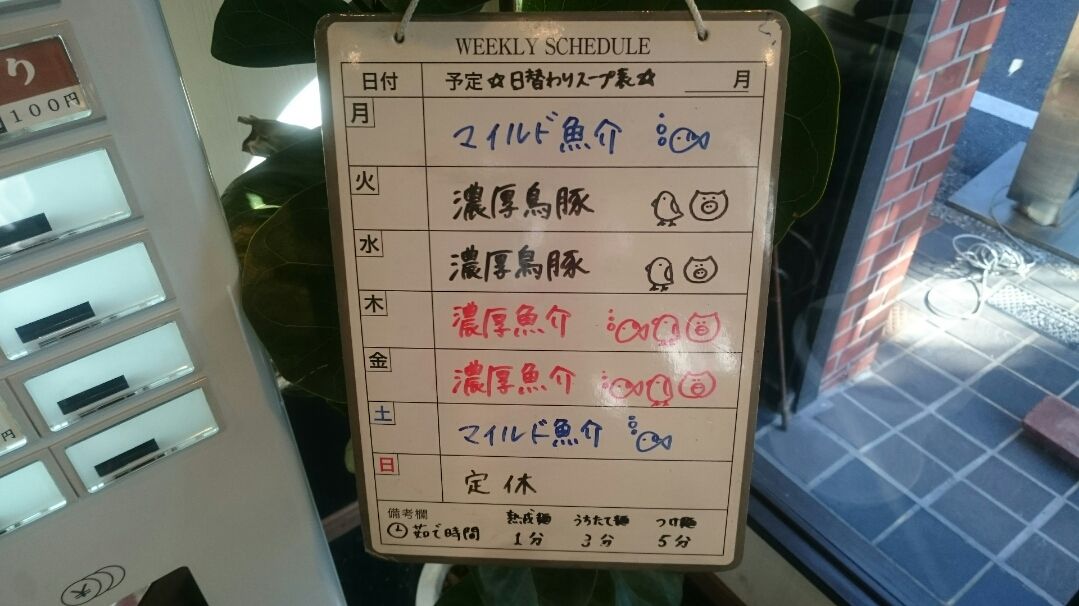 り
100円
円
WEEKLY SCHEDULE
日付 予定 ☆日替わりスープ表☆ 月
月 マイルド魚介
火 濃厚鳥豚
水 濃厚鳥豚
木 濃厚魚介
金 濃厚魚介
土 マイルド魚介
日 定休
備考欄 熟成麺 うちたて麺 つけ麺
茹で時間 1分 3分 5分